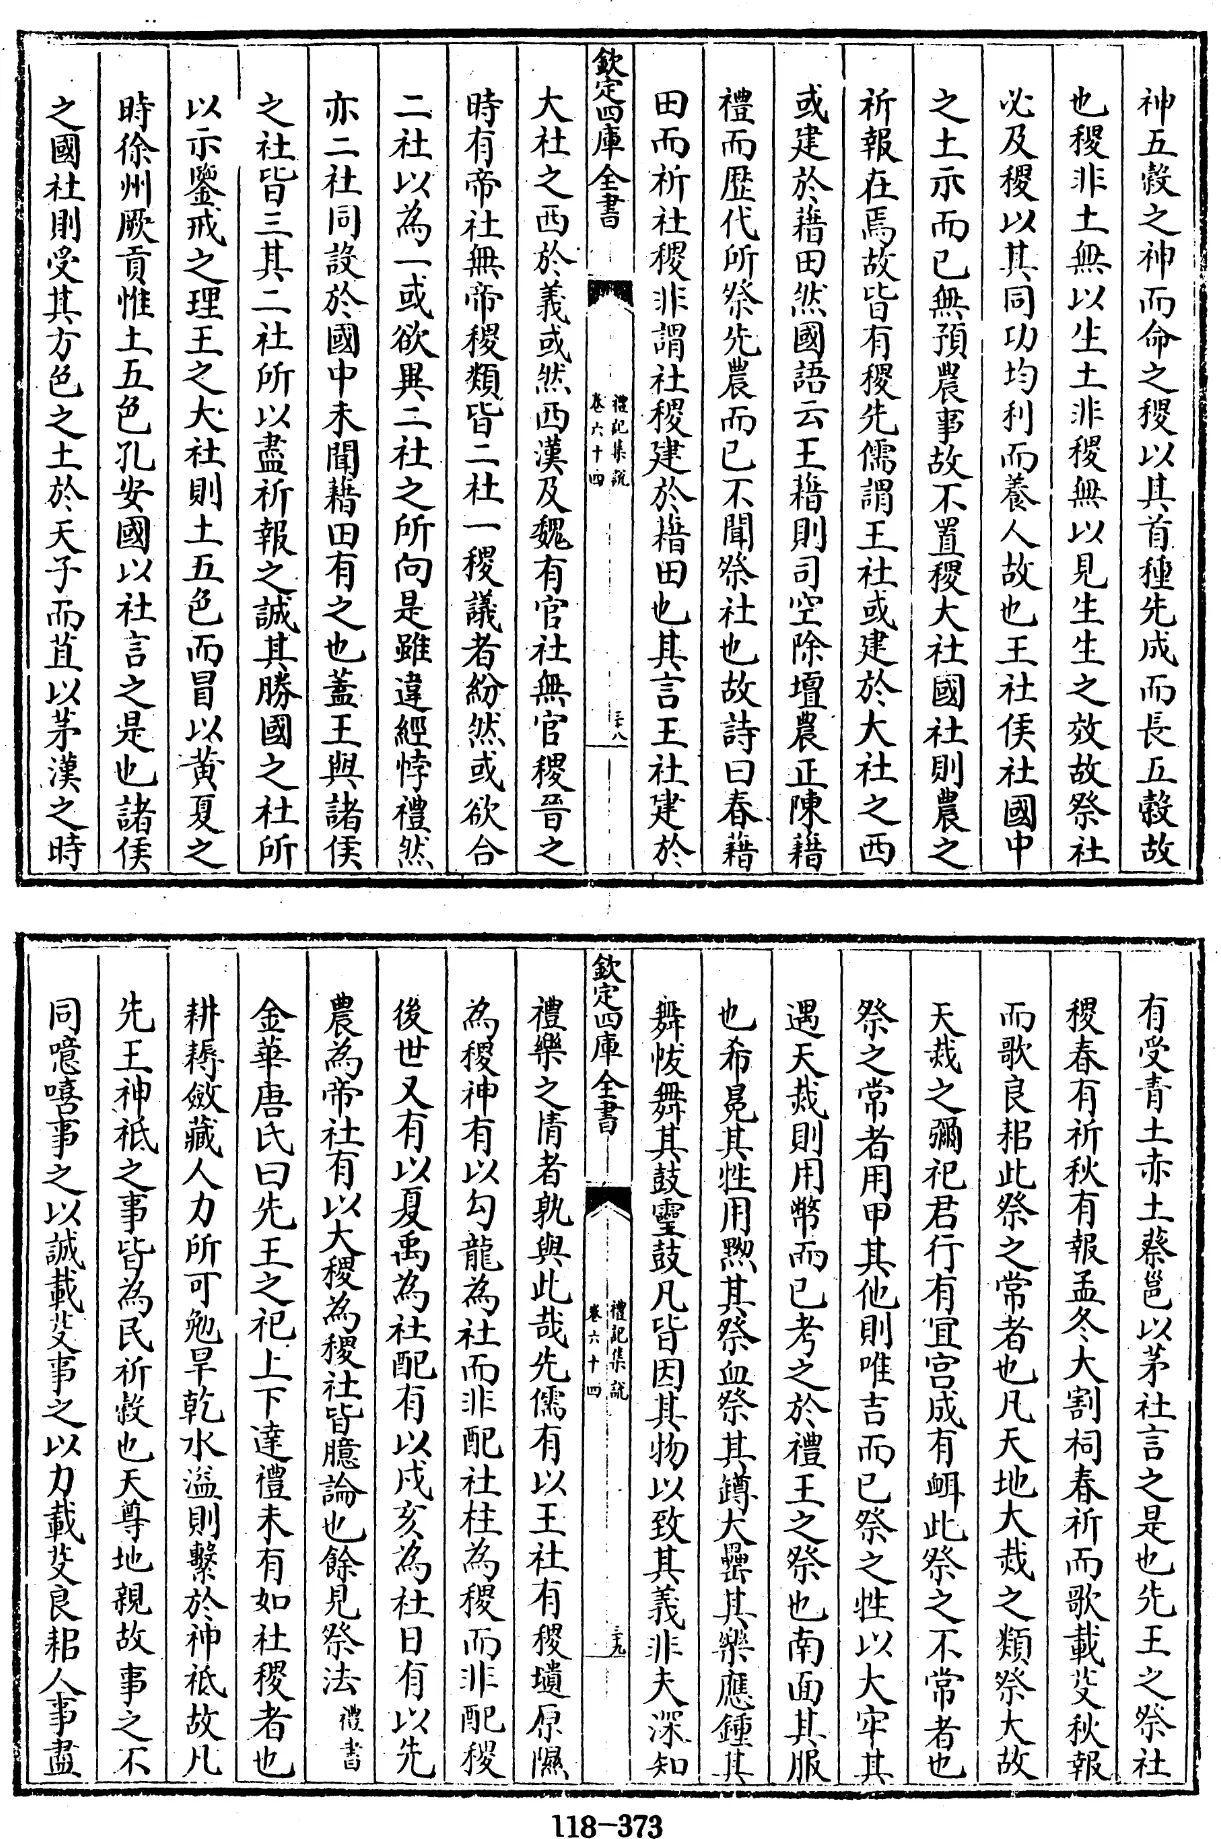 神五糓之神而命之稷以其首種先成而長五糓故
也稷非土無以生土非稷無以見生生之效故祭社
必及稷以其同功均利而養人故也王社侯社國中
之土示而已無預農事故不置稷大社國社則農之
祈報在焉故皆有稷先儒謂王社或建於大社之西
或建於藉田然國語云王藉則司空除壇農正陳藉
禮而歴代所祭先農而已不聞祭社也故詩曰春藉
田而祈社稷非謂社稷建於藉田也其言王社建於
欽定四庫全書
禮記集說
卷六十四
三十八
大社之西於義或然西漢及魏有官社無官稷晉之
時有帝社無帝稷類皆二社一稷議者紛然或欲合
二社以為一或欲異二社之所向是雖違經悖禮然
亦二社同設於國中未聞藉田有之也葢王與諸侯
之社皆三其二社所以盡祈報之誠其勝國之社所
以示鑒戒之理王之大社則土五色而冒以黃夏之
時徐州厥貢惟土五色孔安國以社言之是也諸侯
之國社則受其方色之土於天子而苴以茅漢之時
有受青土赤土蔡邕以茅社言之是也先王之祭社
稷春有祈秋有報孟冬大割祠春祈而歌載芟秋報
而歌良耜此祭之常者也凡天地大烖之類祭大故
天烖之彌祀君行有宜宫成有衈此祭之不常者也
祭之常者用甲其他則唯吉而已祭之牲以大牢其
遇天烖則用幣而已考之於禮王之祭也南面其服
也希冕其牲用黝其祭血祭其罇大罍其樂應鍾其
舞帗舞其鼓靈鼓凡皆因其物以致其義非夫深知
欽定四庫全書
禮記集說
卷六十四
三十九
禮樂之情者孰與此哉先儒有以王社有稷壝原隰
為稷神有以勾龍為社而非配社柱為稷而非配稷
後世又有以夏禹為社配有以戌亥為社日有以先
農為帝社有以大稷為稷社皆臆論也餘見祭法禮書
金華唐氏曰先王之祀上下達禮未有如社稷者也
耕耨斂藏人力所可勉旱乾水溢則繫於神祇故凡
先王神祇之事皆為民祈糓也天尊地親故事之不
同噫嘻事之以誠載芟事之以力載芟良耜人事盡
118-373